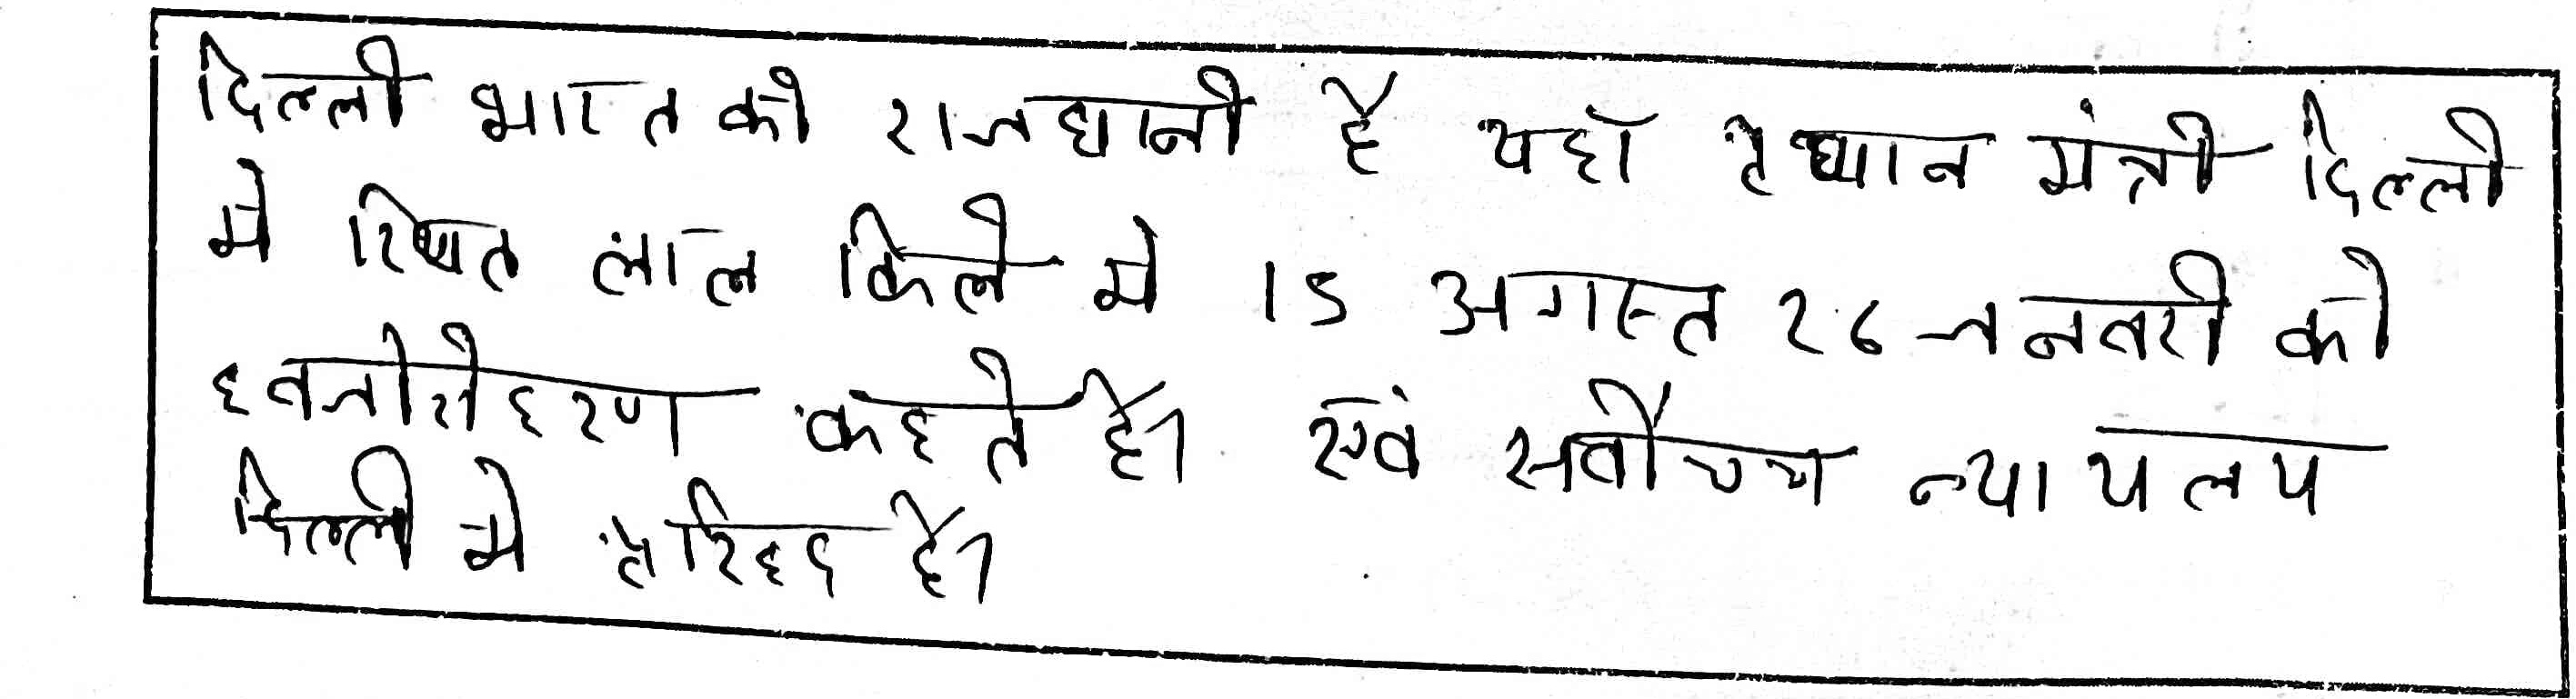 दिल्ली भारत की राजधानी है यहाँ प्रधान मंत्री दिल्ली
मे स्थित लाल किले मे 15 अगस्त 26 जनवरी को
ध्वजोरोहरण कहते है। एवं सर्वोच्च न्यायलय
दिल्ली मे है।